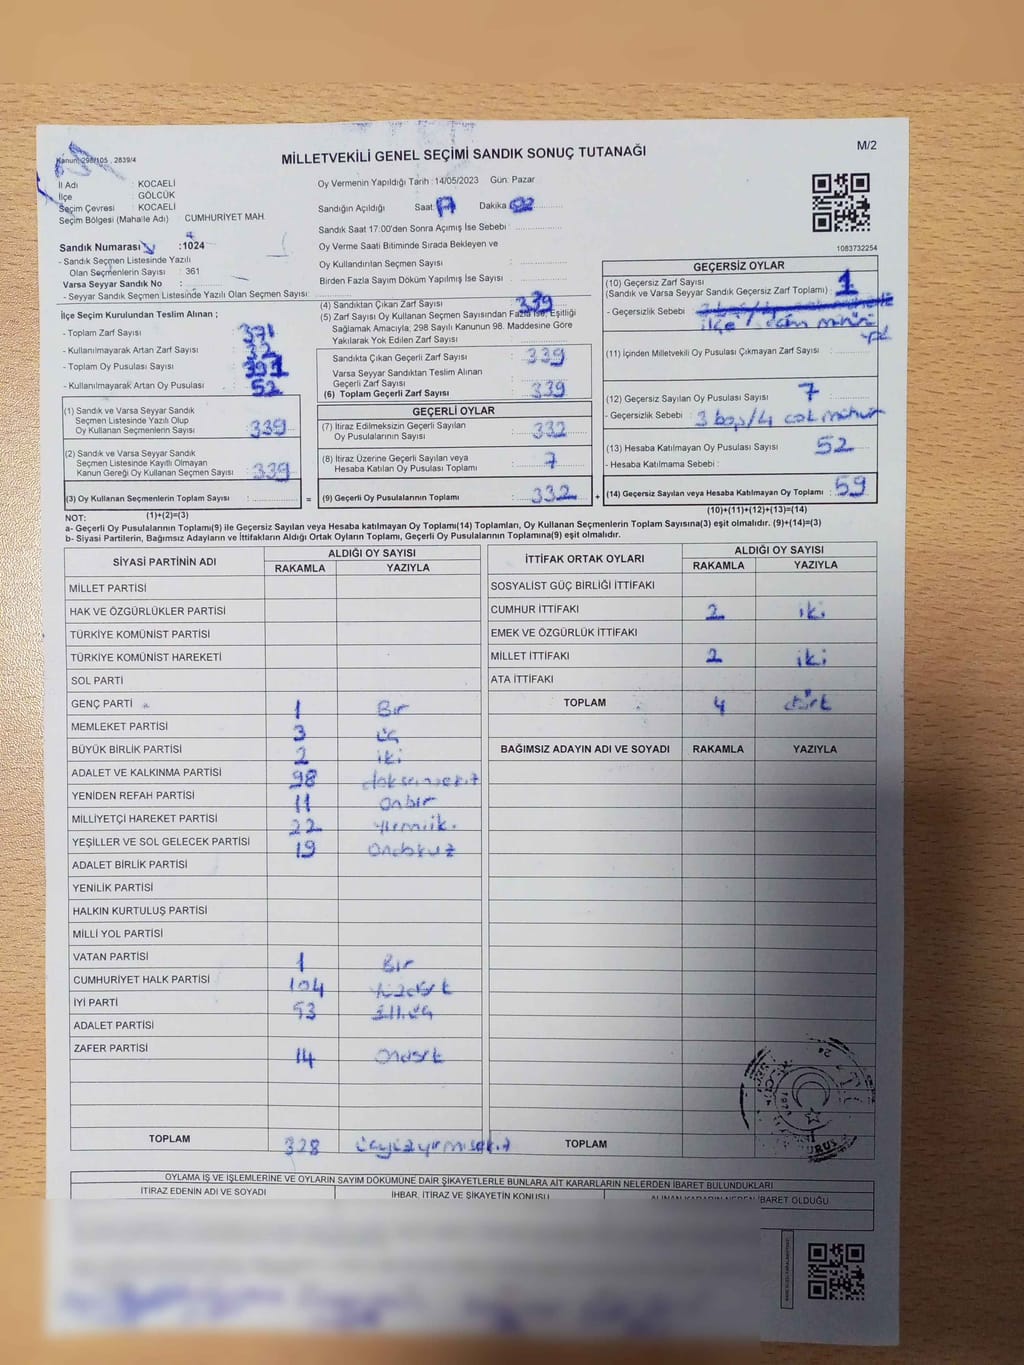 Kanun: 298/105 , 2839/4
MİLLETVEKİLİ GENEL SEÇİMİ SANDIK SONUÇ TUTANAĞI
M/2
İl Adı : KOCAELİ
İlçe : GÖLCÜK
Seçim Çevresi : KOCAELİ
Seçim Bölgesi (Mahalle Adı) : CUMHURİYET MAH.
Sandık Numarası :1024
- Sandık Seçmen Listesinde Yazılı
Olan Seçmenlerin Sayısı : 361
Varsa Seyyar Sandık No :
- Seyyar Sandık Seçmen Listesinde Yazılı Olan Seçmen Sayısı:
İlçe Seçim Kurulundan Teslim Alınan ;
- Toplam Zarf Sayısı :
- Kullanılmayarak Artan Zarf Sayısı : 32
- Toplam Oy Pusulası Sayısı : 391
- Kullanılmayarak Artan Oy Pusulası : 52
(1) Sandık ve Varsa Seyyar Sandık
Seçmen Listesinde Yazılı Olup
Oy Kullanan Seçmenlerin Sayısı : 339
(2) Sandık ve Varsa Seyyar Sandık
Seçmen Listesinde Kayıtlı Olmayan
Kanun Gereği Oy Kullanan Seçmen Sayısı : 339
(3) Oy Kullanan Seçmenlerin Toplam Sayısı :
(1)+(2)=(3)
Oy Vermenin Yapıldığı Tarih : 14/05/2023 Gün: Pazar
Sandığın Açıldığı Saat: 17 Dakika: 02
Sandık Saat 17.00'den Sonra Açılmış İse Sebebi :
Oy Verme Saati Bitiminde Sırada Bekleyen ve
Oy Kullandırılan Seçmen Sayısı :
Birden Fazla Sayım Döküm Yapılmış İse Sayısı :
(4) Sandıktan Çıkan Zarf Sayısı : 339
(5) Zarf Sayısı Oy Kullanan Seçmen Sayısından Fazla İse, Eşitliği
Sağlamak Amacıyla, 298 Sayılı Kanunun 98. Maddesine Göre
Yakılarak Yok Edilen Zarf Sayısı :
Sandıkta Çıkan Geçerli Zarf Sayısı : 339
Varsa Seyyar Sandıktan Teslim Alınan
Geçerli Zarf Sayısı :
(6) Toplam Geçerli Zarf Sayısı : 339
GEÇERLİ OYLAR
(7) İtiraz Edilmeksizin Geçerli Sayılan
Oy Pusulalarının Sayısı : 332
(8) İtiraz Üzerine Geçerli Sayılan veya
Hesaba Katılan Oy Pusulası Toplamı : 7
= (9) Geçerli Oy Pusulalarının Toplamı : 332 +
1083732254
GEÇERSİZ OYLAR
(10) Geçersiz Zarf Sayısı
(Sandık ve Varsa Seyyar Sandık Geçersiz Zarf Toplamı) : 1
- Geçersizlik Sebebi :
(11) İçinden Milletvekili Oy Pusulası Çıkmayan Zarf Sayısı :
(12) Geçersiz Sayılan Oy Pusulası Sayısı : 7
- Geçersizlik Sebebi : 3 boş/4 çok mühür
(13) Hesaba Katılmayan Oy Pusulası Sayısı : 52
- Hesaba Katılmama Sebebi :
(14) Geçersiz Sayılan veya Hesaba Katılmayan Oy Toplamı : 59
(10)+(11)+(12)+(13)=(14)
NOT:
a- Geçerli Oy Pusulalarının Toplamı(9) ile Geçersiz Sayılan veya Hesaba katılmayan Oy Toplamı(14) Toplamları, Oy Kullanan Seçmenlerin Toplam Sayısına(3) eşit olmalıdır. (9)+(14)=(3)
b- Siyasi Partilerin, Bağımsız Adayların ve İttifakların Aldığı Ortak Oyların Toplamı, Geçerli Oy Pusulalarının Toplamına(9) eşit olmalıdır.
SİYASİ PARTİNİN ADI ALDIĞI OY SAYISI
RAKAMLA YAZIYLA
MİLLET PARTİSİ
HAK VE ÖZGÜRLÜKLER PARTİSİ
TÜRKİYE KOMÜNİST PARTİSİ
TÜRKİYE KOMÜNİST HAREKETİ
SOL PARTİ
GENÇ PARTİ 1 Bir
MEMLEKET PARTİSİ 3 üç
BÜYÜK BİRLİK PARTİSİ 2 iki
ADALET VE KALKINMA PARTİSİ 98 doksansekiz
YENİDEN REFAH PARTİSİ 11 onbir
MİLLİYETÇİ HAREKET PARTİSİ 22
YEŞİLLER VE SOL GELECEK PARTİSİ 19 ondokuz
ADALET BİRLİK PARTİSİ
YENİLİK PARTİSİ
HALKIN KURTULUŞ PARTİSİ
MİLLİ YOL PARTİSİ
VATAN PARTİSİ 1 Bir
CUMHURİYET HALK PARTİSİ 104 yüzdört
İYİ PARTİ 53
ADALET PARTİSİ
ZAFER PARTİSİ 14 ondört
TOPLAM 328 üçyüzyirmisekiz
İTTİFAK ORTAK OYLARI ALDIĞI OY SAYISI
RAKAMLA YAZIYLA
SOSYALİST GÜÇ BİRLİĞİ İTTİFAKI
CUMHUR İTTİFAKI 2 iki
EMEK VE ÖZGÜRLÜK İTTİFAKI
MİLLET İTTİFAKI 2 iki
ATA İTTİFAKI
TOPLAM 4 dört
BAĞIMSIZ ADAYIN ADI VE SOYADI RAKAMLA YAZIYLA
TOPLAM
OYLAMA İŞ VE İŞLEMLERİNE VE OYLARIN SAYIM DÖKÜMÜNE DAİR ŞİKAYETLERLE BUNLARA AİT KARARLARIN NELERDEN İBARET BULUNDUKLARI
İTİRAZ EDENİN ADI VE SOYADI İHBAR, İTİRAZ VE ŞİKAYETİN KONUSU ALINAN KARARIN NEDEN İBARET OLDUĞU